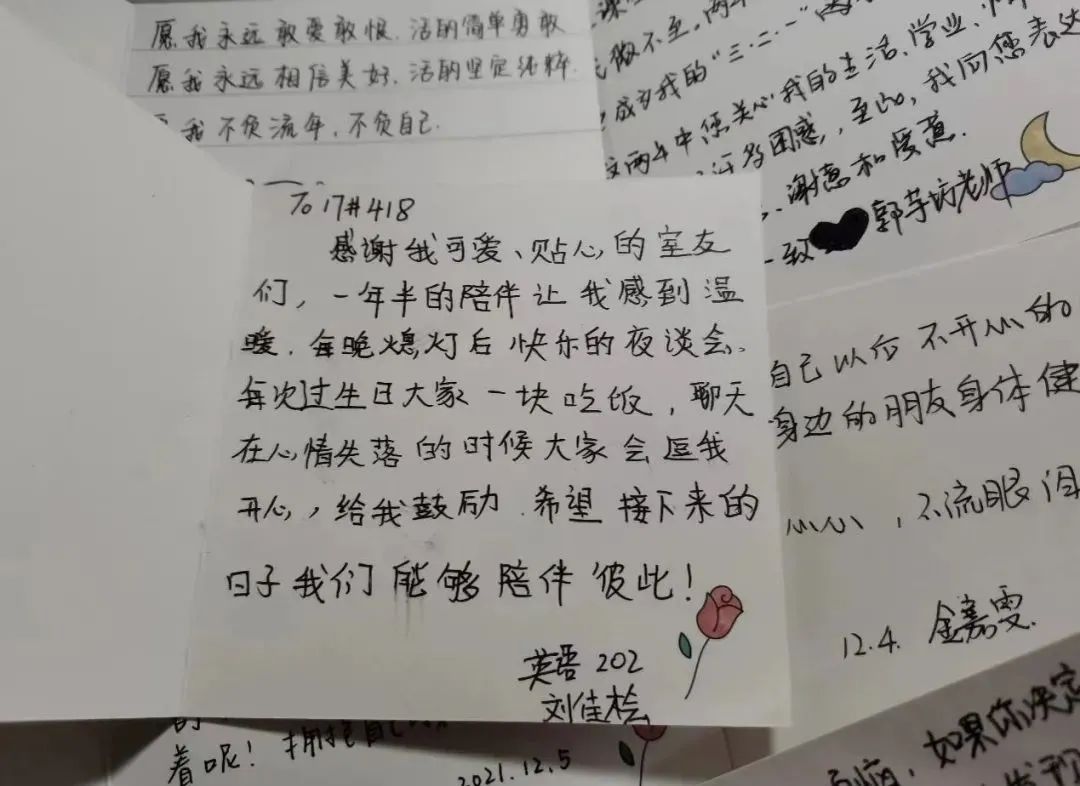 愿我永远敢爱敢恨、活的简单勇敢
愿我永远相信美好、活的坚定纯粹
我不负流年,不负自己.
做不至,两年
成为我的“三·二·一”
两年中您关心我的生活、学业、
困惑,至此,我向您表达
谢意和爱意.
致 郭芋坊老师
To 17#418
感谢我可爱、贴心的室友
们,一年半的陪伴让我感到温
暖.每晚熄灯后快乐的夜谈会、
每次过生日大家一块吃饭,聊天
在心情失落的时候大家会逗我
开心,给我鼓励.希望接下来的
日子我们能够陪伴彼此!
英语 202
刘佳桧
自己以后不开心的
身边的朋友身体健
心心,不流眼泪
12.4. 金嘉雯.
着呢!拥抱自己
2021.12.5
如果你决定